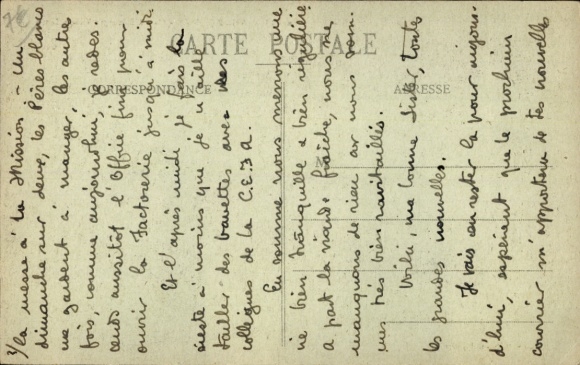 CARTE POSTALE
CORRESPONDANCE
ADRESSE
3/ la messe à la Mission - Un
dimanche sur deux, les Pères blancs
me gardent à manger, les autres
fois, comme aujourd'hui, je redes-
cends aussitôt l'Office fini pour
ouvrir la Factorerie jusqu'à midi.
Et l'après midi je fais la
sieste à moins que je n'aille
tailler des bavettes avec des
collègues de la C.E.3A.
En somme nous menons une
vie bien tranquille & bien régulière
a part la viande fraîche, nous ne
manquons de rien car nous som-
mes très bien ravitaillés.
Voilà, ma bonne Sister, toutes
les grandes nouvelles.
Je vais en rester là pour aujour-
d'hui, espérant que le prochain
courrier m'apportera de tes nouvelles